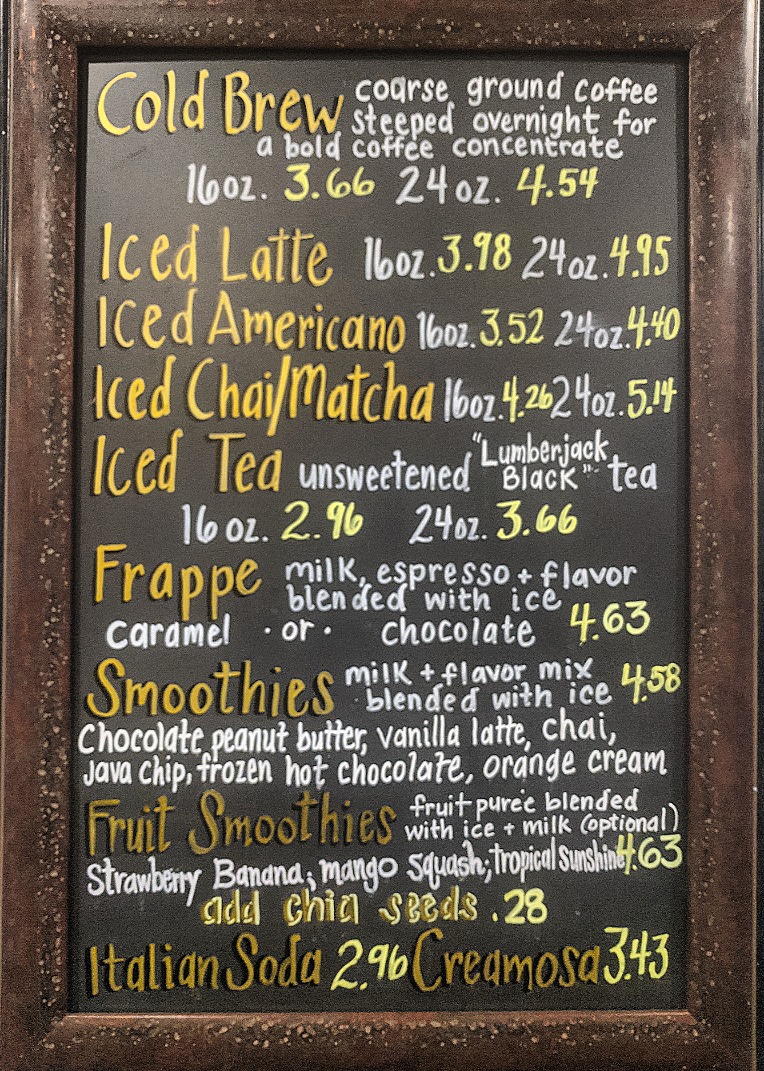 Cold Brew coarse ground coffee
steeped overnight for
a bold coffee concentrate
16oz. 3.66 24oz. 4.54
Iced Latte 16oz. 3.98 24oz. 4.95
Iced Americano 16oz. 3.52 24oz. 4.40
Iced Chai/Matcha 16oz. 4.26 24oz. 5.14
Iced Tea unsweetened "Lumberjack
Black" tea
16oz. 2.96 24oz. 3.66
Frappe milk, espresso + flavor
blended with ice
caramel · or · chocolate 4.63
Smoothies milk + flavor mix 4.58
blended with ice
Chocolate peanut butter, vanilla latte, chai,
Java chip, frozen hot chocolate, orange cream
Fruit Smoothies fruit pureé blended
with ice + milk (optional)
Strawberry Banana; mango squash; Tropical Sunshine 4.63
add chia seeds .28
Italian Soda 2.96 Creamosa 3.43